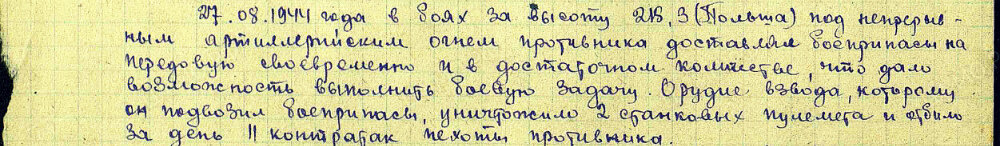 27.08.1944 года в боях за высоту 213,3 (Польша) под непрерыв-
ным артиллерийским огнем противника доставлял боеприпасы на
передовую своевременно и в достаточном количестве, что дало
возможность выполнить боевую задачу. Орудие взвода, которому
он подвозил боеприпасы, уничтожило 2 станковых пулемета и отбило
за день 11 контратак пехоты противника.